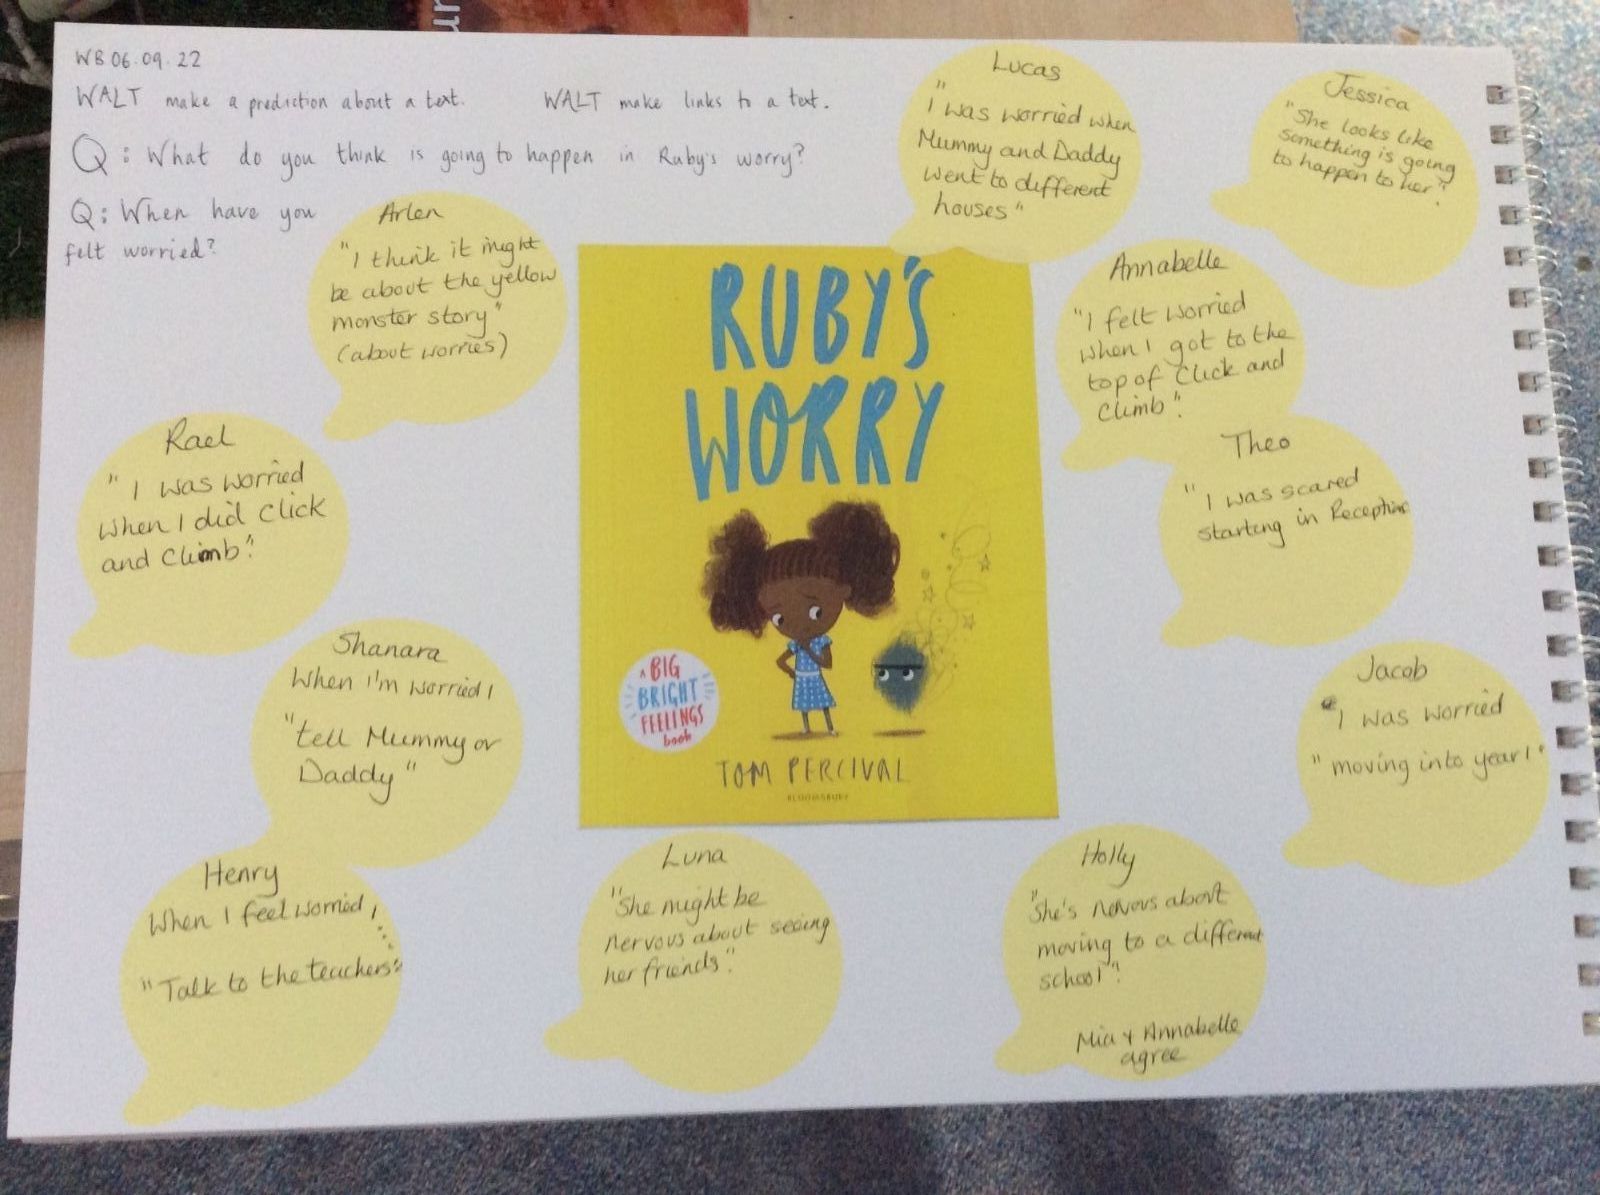 WB 06.09.22
WALT make a prediction about a text. WALT make links to a text.
Q: What do you think is going to happen in Ruby's worry?
Q: When have you
felt worried?
Arlen
"I think it might
be about the yellow
monster story"
(about worries)
Lucas
"I was worried when
Mummy and Daddy
went to different
houses"
Jessica
"She looks like
something is going
to happen to her".
Annabelle
"I felt worried
when I got to the
top of Click and
Climb".
Theo
"I was scared
starting in Reception
Rael
"I was worried
when I did Click
and Climb."
RUBY'S
WORRY
A BIG
BRIGHT
FEELINGS
book
TOM PERCIVAL
BLOOMSBURY
Shanara
When I'm worried I
"tell Mummy or
Daddy"
Jacob
I was worried
"moving into year 1"
Henry
When I feel worried, I...
"Talk to the teachers."
Luna
"She might be
nervous about seeing
her friends".
Holly
"She's nervous about
moving to a different
school".
Mia + Annabelle
agree